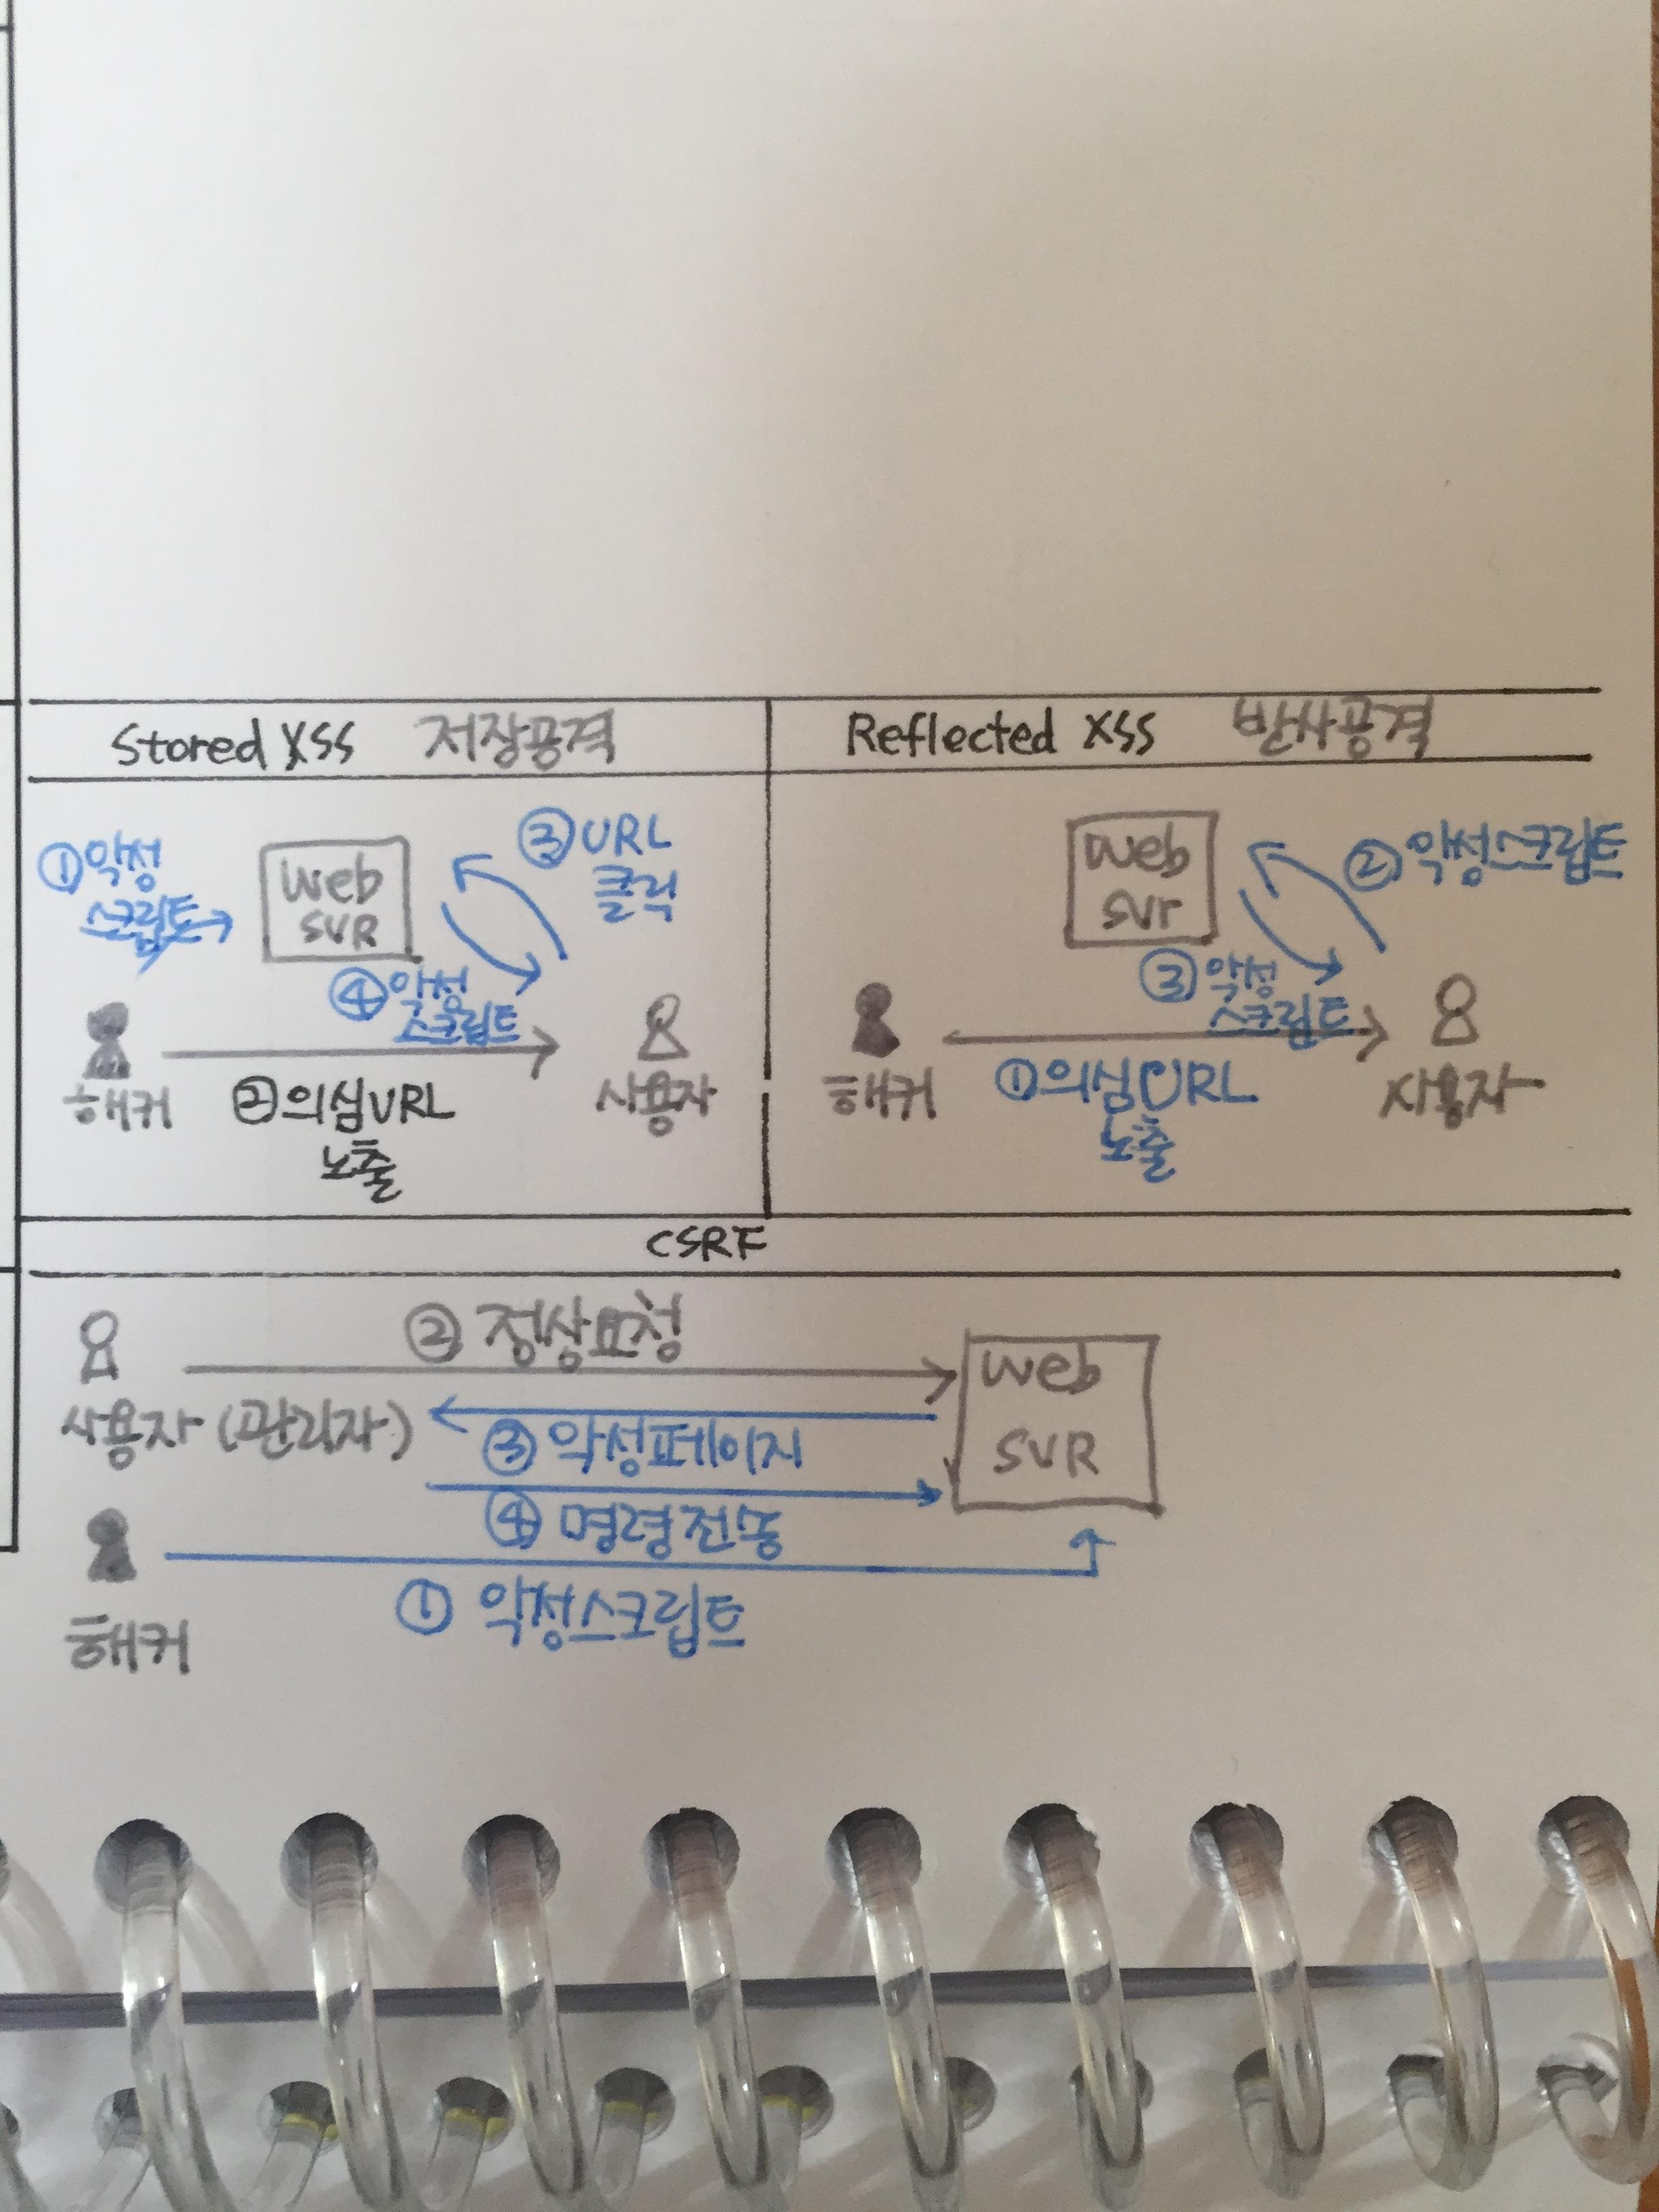 Stored XSS 저장공격
Reflected XSS 반사공격
①악성
스크립트
Web
SVR
③URL
클릭
④악성
스크립트
해커
②의심URL
노출
사용자
Web
Svr
②악성스크립트
③악성
스크립트
해커
①의심URL
노출
사용자
CSRF
②정상요청
사용자(관리자)
③악성페이지
④명령전송
Web
SVR
해커
①악성스크립트